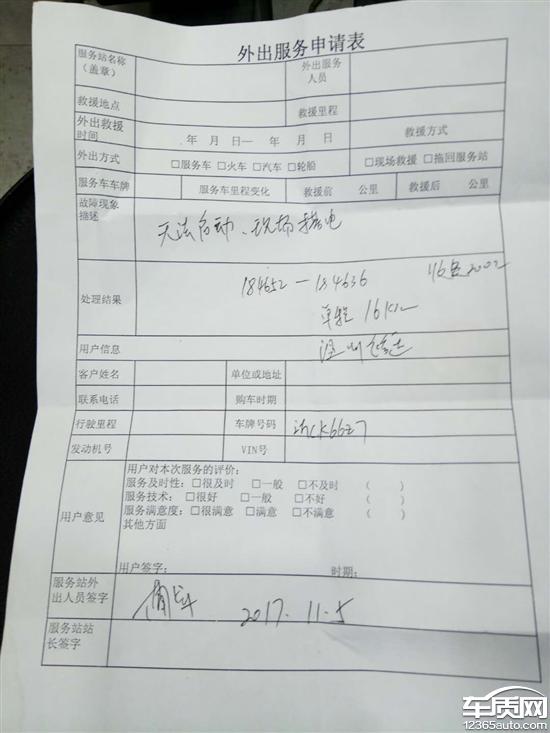 外出服务申请表
服务站名称（盖章）
外出服务人员
救援地点
救援里程
外出救援时间
年 月 日— 年 月 日
救援方式
外出方式
□服务车 □火车 □汽车 □轮船
□现场救援 □拖回服务站
服务车车牌
服务车里程变化
救援前 公里
救援后 公里
故障现象描述
无法启动、现场搭电
处理结果
184652—184636
单程 16Km
用户信息
客户姓名
单位或地址
联系电话
购车时期
行驶里程
车牌号码
浙CK66Z7
发动机号
VIN号
用户意见
用户对本次服务的评价：
服务及时性：□很及时 □一般 □不及时 （ ）
服务技术： □很好 □一般 □不好 （ ）
服务满意度：□很满意 □满意 □不满意 （ ）
其他方面
用户签字： 时期：
服务站外出人员签字
2017.11.5
服务站站长签字
车质网
12365auto.com